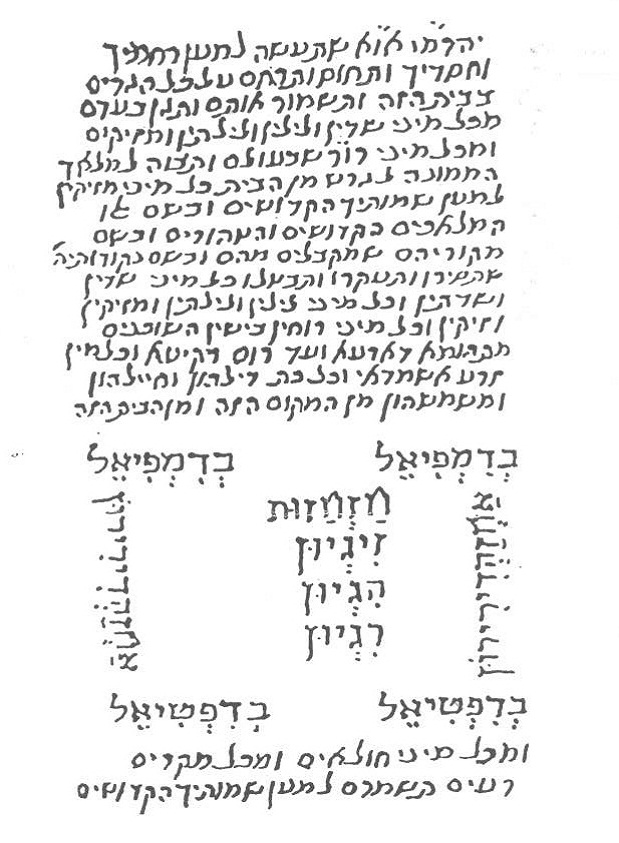 יהרמי או"א שתעשה למען רחמיך
וחסדיך ותחוס ותרחם על כל הגרים
בבית הזה ותשמור אותם ותגן בעדם
מכל מיני שדין ולילין ולילתין ומזיקים
ומכל מיני רו"ר שבעולם ותצוה למלאך
הממונה לגרש מן הבית כל מיני מזיקין
למען שמותיך הקדושים ובשם
המלאכים הקדושים והטהורים ובשם
מקוריהם שמקבלים מהם ובשם נקודותיה'
ותעקרו ותבטלו כל מיני שדין
ושדתין וכל מיני לילין ולילתין ומזיקין
וזיקין וכל מיני רוחין בישין השוכנים
מתהומא דארעא ועד רום רקיעא וכל מין
זרע אשמדאי וכל כת דילהון וחיילהון
ומשמשהון מן המקום הזה ומן הבית הזה
בְדִמְפִיאֵל בְדִמְפִיאֵל
חַזְחַזוּת
זִיגְיוּן
הִגְיוּן
רִגְיוּן
בְדִפְטִיאֵל בְדִפְטִיאֵל
ומכל מיני חולאים ומכל מקרים
רעים תשמרם למען שמותיך הקדושים